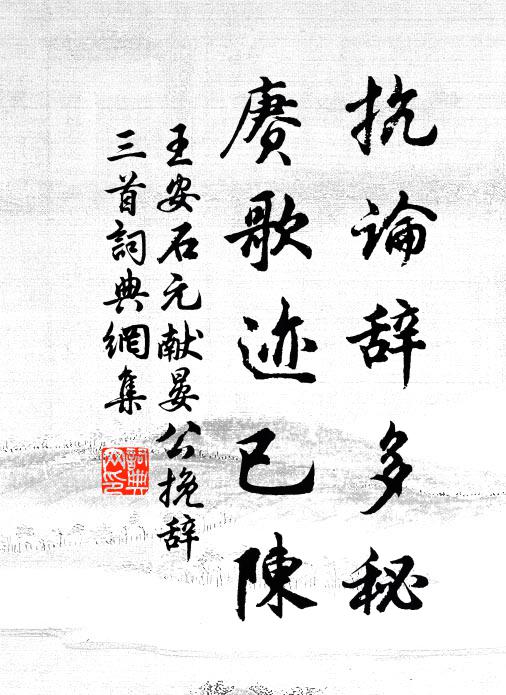 抗论辞多秘
赓歌迹已陳
王安石元献晏公挽辞
三首詞典網集
詞典網印